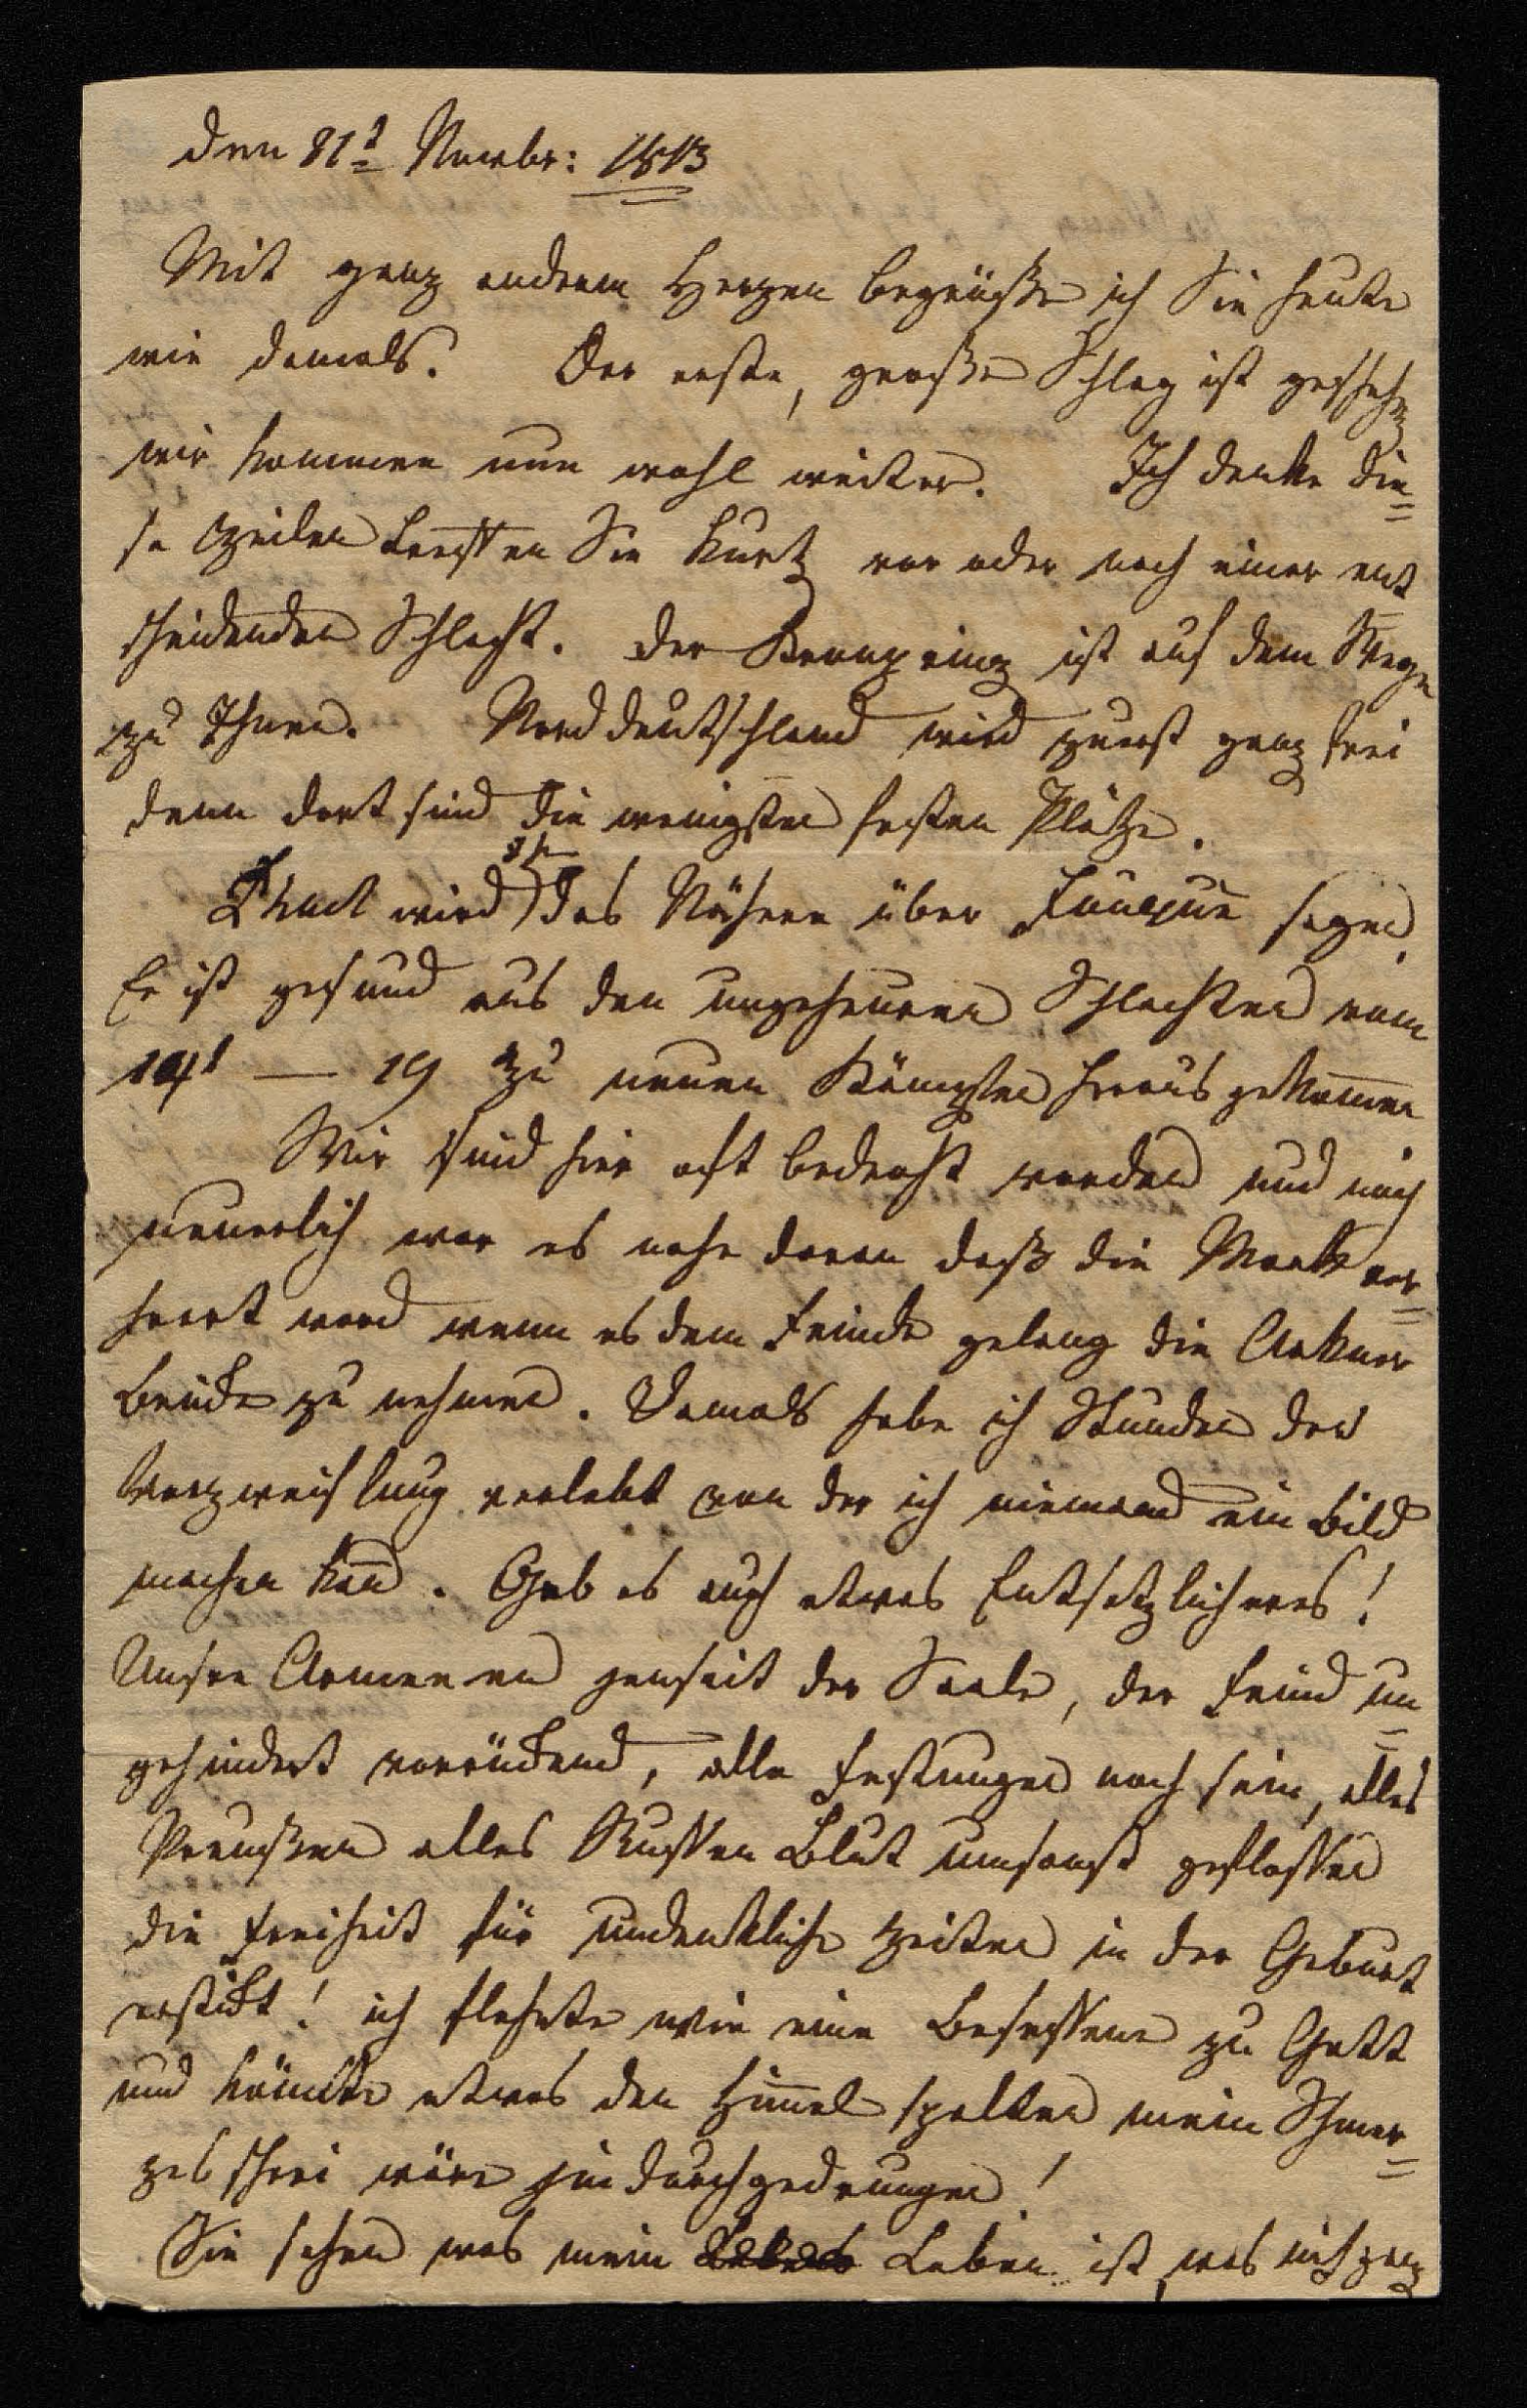 den 21t Novbr: 1813
Mit ganz anderem Herzen begrüße ich Sie heute
wie damals. Der erste, große Schlag ist geschehn
wir kommen nun wohl weiter. Ich denke die=
se Zeilen treffen Sie kurtz vor oder nach einer ent
scheidenden Schlacht. Der Kronprinz ist auf dem Wege
zu Ihnen. Norddeutschland wird zuerst ganz frei
denn dort sind die wenigsten festen Plätze.
wird das Nähere über Fouqué sagen.
Er ist gesund aus den ungeheuren Schlachten vom
14t — 19 zu neuen Kämpfen heraus gekommen
Wir sind hier oft bedroht worden und noch
neuerlich war es nahe daran daß die Mark ver=
heert ward wenn es dem Feinde gelang die Ackner
Brücke zu nehmen. Damals habe ich Stunden der
Verzweiflung verlebt von der ich niemand ein Bild
machen kan̄. Gab es auch etwas Entsetzlicheres!
Unsre Armeen jenseit der Saale, der Feind un=
gehindert vorrückend, alle Festungen noch sein, alles
Preußen alles Russen Blut umsonst geflossen
die Freiheit für undenkliche Zeiten in der Geburt
erstickt! ich flehete wie eine Besessene zu Gott
und könnte etwas den Him̄el spalten mein Schmer=
zes schrei wäre hindurchgedrungen!
Sie sehen was mein Leben ist, was mich ganz